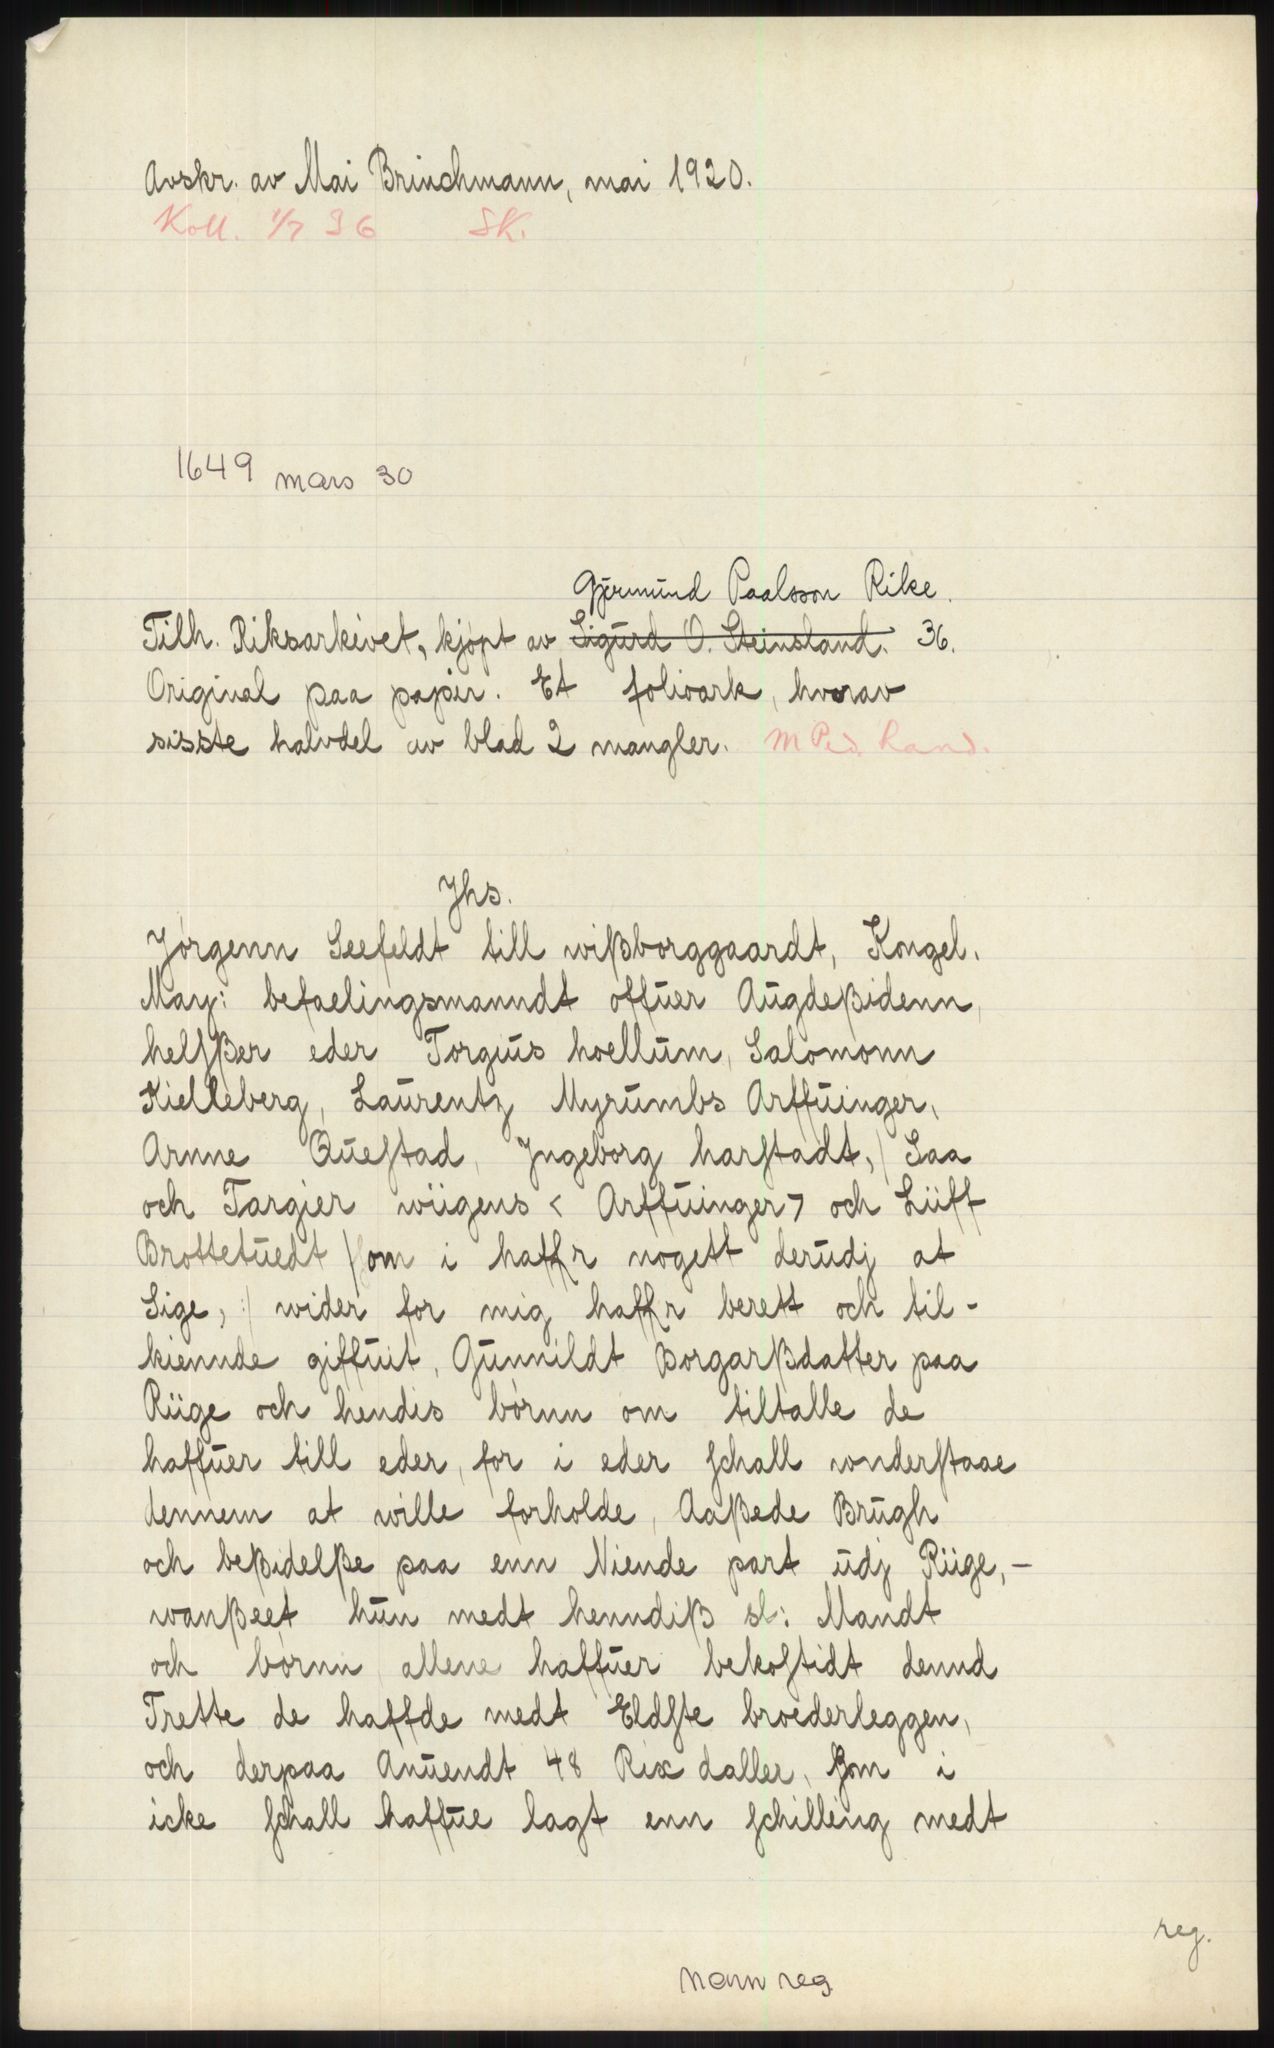 Avskr. av Mai Brinchmann, mai 1920.
Koll. 1/7 36 SK.
1649 mars 30
Gjermund Paalsson Rike.
Tilh. Riksarkivet, kjøpt av Sigurd O. Steinsland. 36.
Original paa papir. Et folioark, hvorav
sisste halvdel av blad 2 mangler. M Ped. Rand.
Jhs.
Jørgenn Seefeldt till wißborggaardt, Kongel.
May: befaelingsmanndt offuer Augdeßidenn,
helßer eder Torgius hoellum, Salomonn
Kielleberg, Laurentz Myrumbs Arffuinger,
Arnne Queſtad, Jngeborg harſtadt, / Saa
och Targier wiigens < Arffuinger > och Liiff
Brottetuedt / ſom i haffr nogett derudj at
Sige, :/ wider for mig haffr berett och til-
kiennde giffuit, Gunnildt Borgarßdatter paa
Riige och hendis børnn om tiltalle de
haffuer till eder, for i eder ſchall wnderſtaae
dennem at wille forholde, Aaßede Brugh
och beßidelße paa enn Niende part udj Riige, -
wanßeet hun medt henndiß sl: Mandt
och børnn allene haffuer bekoſtidt dennd
Trette de haffde medt Eldſte broederleggen,
och derpaa Anuendt 48 Rix daller, ſom i
icke ſchall haffue lagt enn ſchilling medt
reg.
navn reg